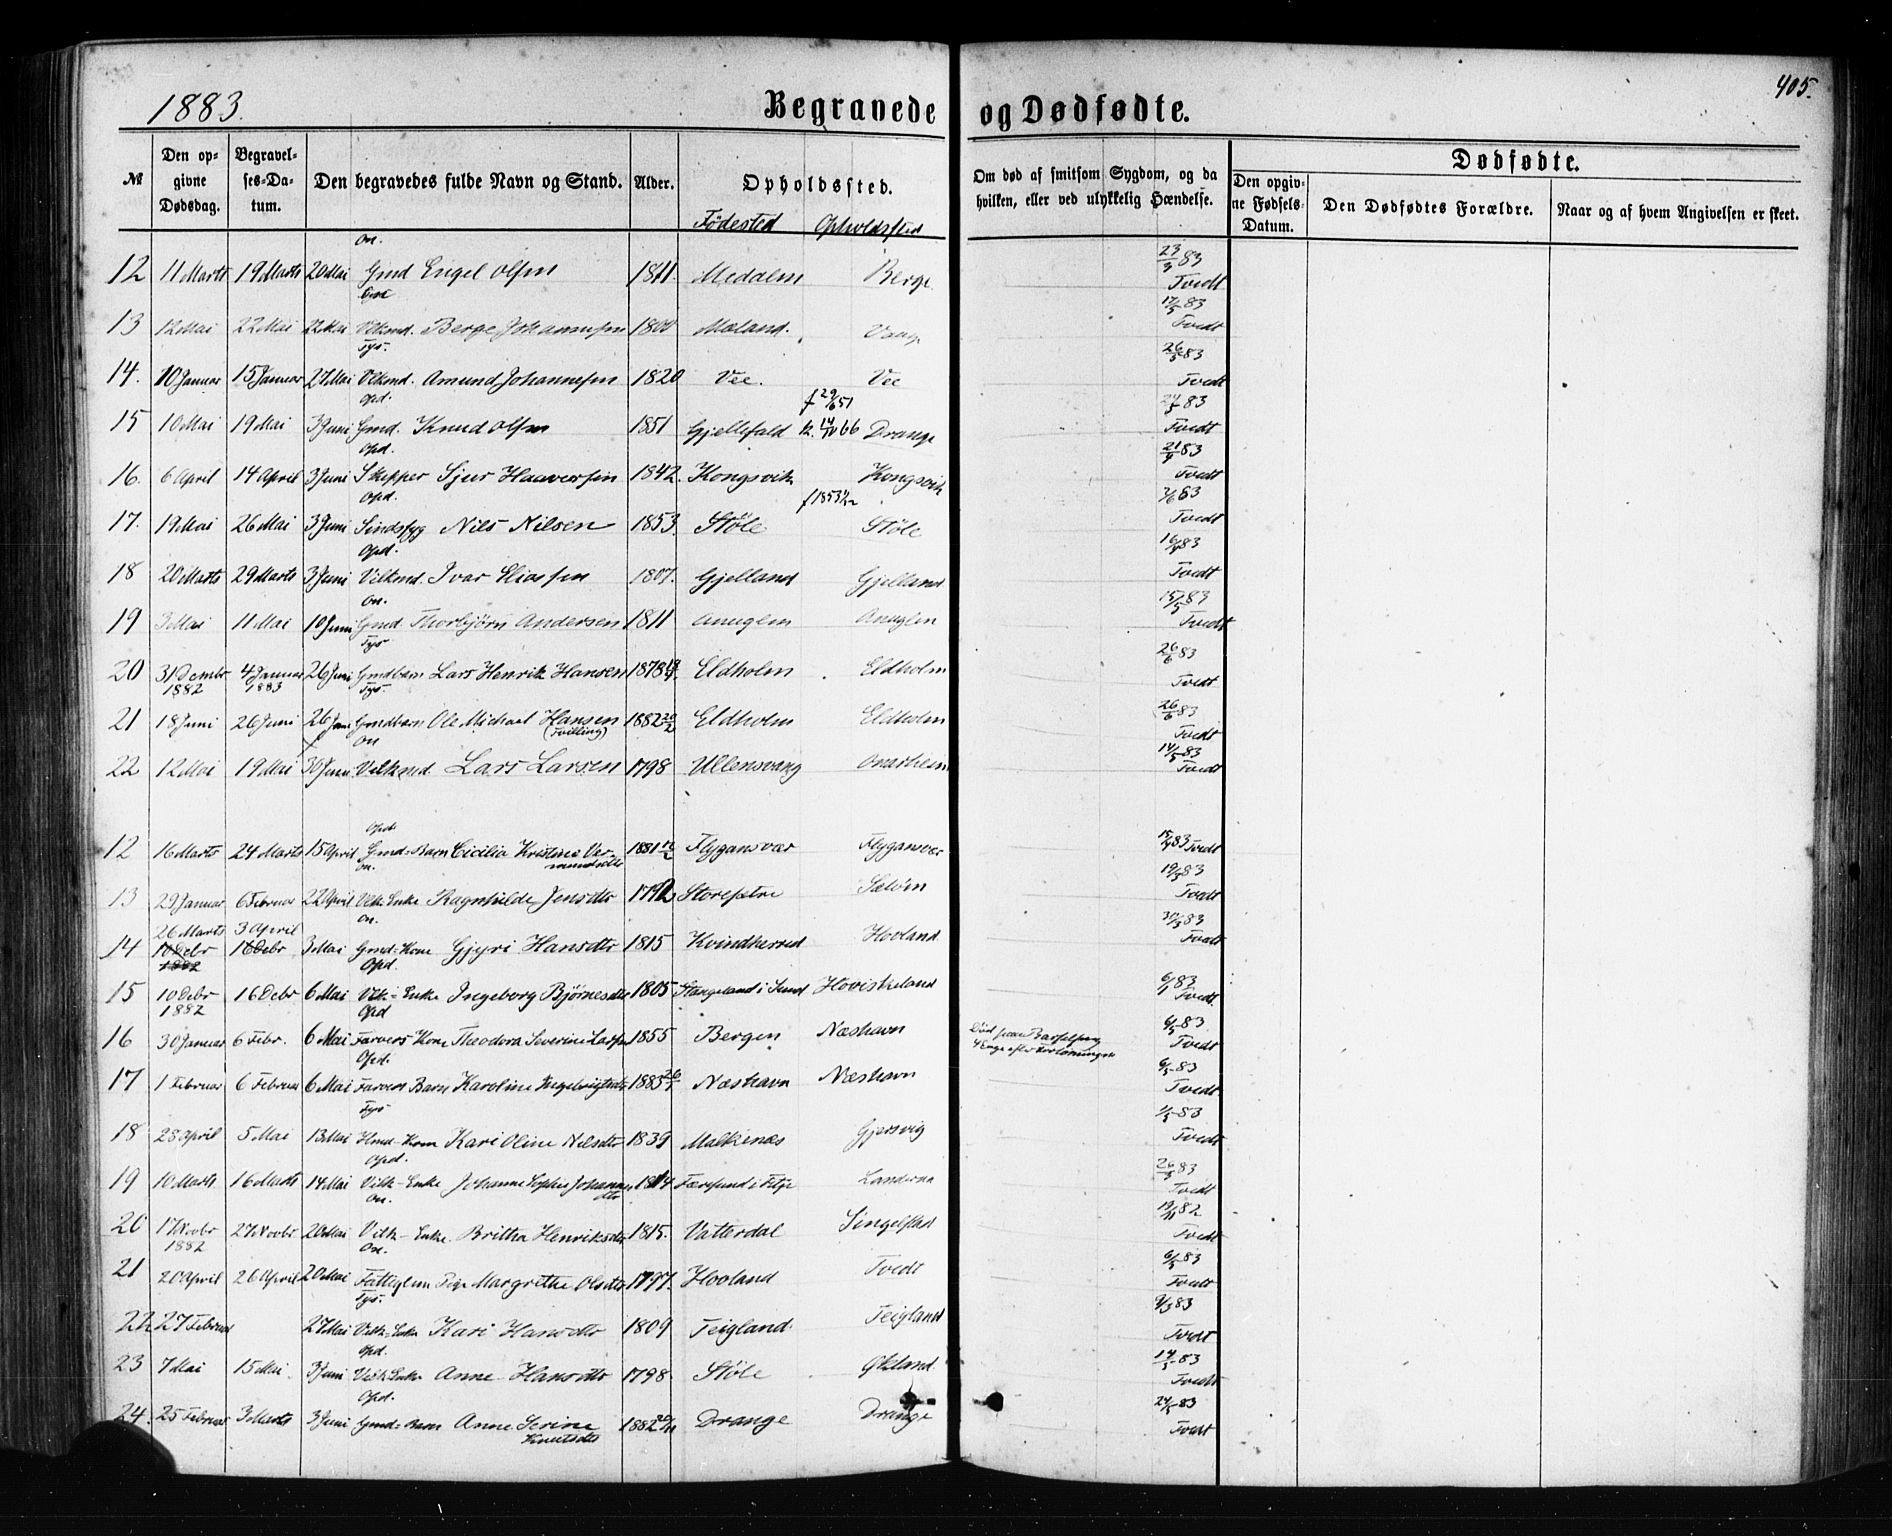 1883. Begravede og Dødfødte. 405.
№ Den opgivne Dødsdag. Begravelses-Datum. Den begravedes fulde Navn og Stand. Alder. Opholdssted. Om død af smitsom Sygdom, og da hvilken, eller ved ulykkelig Hændelse. Dødfødte.
Fødested Opholdssted Den opgivne Fødsels-Datum. Den Dødfødtes Forældre. Naar og af hvem Angivelsen er skeet.
On.
12 11 Marts 19 Marts 20 Mai Gmd Engel Olsen 1811. Medalen Berge 23/3 83 Tvedt
13 12 Mai 22 Mai 22 Mai Vilkmd. Berge Johannessen 1800 Mæland. 17/5 83 Tvedt
Tys.
14. 10 Januar 15 Januar 27 Mai Vilkmd. Amund Johannesen 1820 Vee. Vee 26/5 83 Tvedt
Opd.
15 10 Mai 19 Mai 3 Juni Gmd. Knud Olsen 1851 Gjellefald f 29/6 51 k. 14/10 66 Drange 24/5 83 Tvedt
Opd.
16. 6 April 14 April 3 Juni Skipper Sjur Haaversen 1842. Kongsvik Kongsvik 21/4 83 Tvedt
Opd.
17. 19 Mai 26 Mai 3 Juni Sindssyg Nils Nilsen 1853. Støle Støle 2/6 83 Tvedt
Opd.
18 20 Marts 29 Marts 3 Juni Vilkmd. Ivar Eliassen 1807. Gjelland Gjelland 16/4 83 Tvedt
On.
19 3 Mai 11 Mai 10 Juni Gmd. Thorbjørn Andersen 1811 Anuglen Anuglen 15/5 83 Tvedt
Tys
20 31 Decembr 1882 4 Januar 1883 26 Juni Gmdbarn Lars Henrik Hansen 1878 Eldholm Eldholm 26/6 83 Tvedt
Tys.
21 18 Juni 26 Juni 26 Juni Gmdbarn Ole Michael Hansen (Tvilling) 1882 20/2 Eldholm Eldholm 26/6 83 Tvedt
On
22 12 Mai 19 Mai 30 Juni Vilkmd Lars Larsen 1798 Ullensvang Onarheim 14/5 83 Tvedt
Opd
12 16 Marts 24 Marts 15 April Gmd-Barn Cicilia Kristine Vermundsdtr 1881 Flygansvær Flygansvær 15/4 83 Tvedt
On.
13 29 Januar 6 Februar 22 April Vilk Enke Ragnhilde Jensdtr Storesætre Sælöen 19/3 83 Tvedt
On.
14 26 Marts 10 Debr 1882 3 April 16 Debr 3 Mai Gmd-Kone Gjyri Hansdtr 1815 Kvindherred Hovland 30/3 83 Tvedt
Opd.
15 10 Debr 1882 16 Debr 6 Mai Vilk-Enke Ingeborg Bjørnesdtr 1805 Stangeland i Sund Hoviskeland 6/1 83 Tvedt.
Opd
16 30 Januar 6 Febr. 6 Mai Farvers Kone Theodora Severine Larsen 1855 Bergen Næshavn Død paa Barselseng 4 Uge efter Forløsningen 6/5 83 Tvedt
Opd.
17 1 Februar 6 Februar 6 Mai Farvers Barn Karoline Ingebrigtsdtr 1883 26/1 Næshavn Næshavn 6/5 83 Tvedt.
Tys
18 28 April 5 Mai 13 Mai Hmd-Kone Kari Oline Nilsdtr 1839 Malkenæs Gjersvig 1/5 83 Tvedt
Opd.
19 10 Marts 16 Marts 14 Mai Vilk-Enke Johanne Sophie Johannesdtr 1814 Færesund i Fitje Landerna 26/3 83 Tvedt
On.
20 17 Novbr 1882 27 Novbr 20 Mai Vilk-Enke Britha Henriksdtr 1815. Vatterdal Singelstad 19/11 82 Tvedt
On.
21 20 April 26 April 20 Mai Fattiglem Pige Margrethe Olsdtr 1797. Hovland Tvedt 6/5 83 Tvedt
Tys.
22 27 Februar 27 Mai Vilk-Enke Kari Hansdtr 1809 Teigland Teigland 9/3 83 Tvedt
Opd.
23 7 Mai 15 Mai. 3 Juni Vilk Enke Anne Hansdtr 1798. Støle Økland 14/5 83 Tvedt
Opd.
24. 25 Februar 3 Marts 3 Juni Gmd-Barn Anne Serine Knutsdtr 1882 Drange Drange 24/5 83 Tvedt